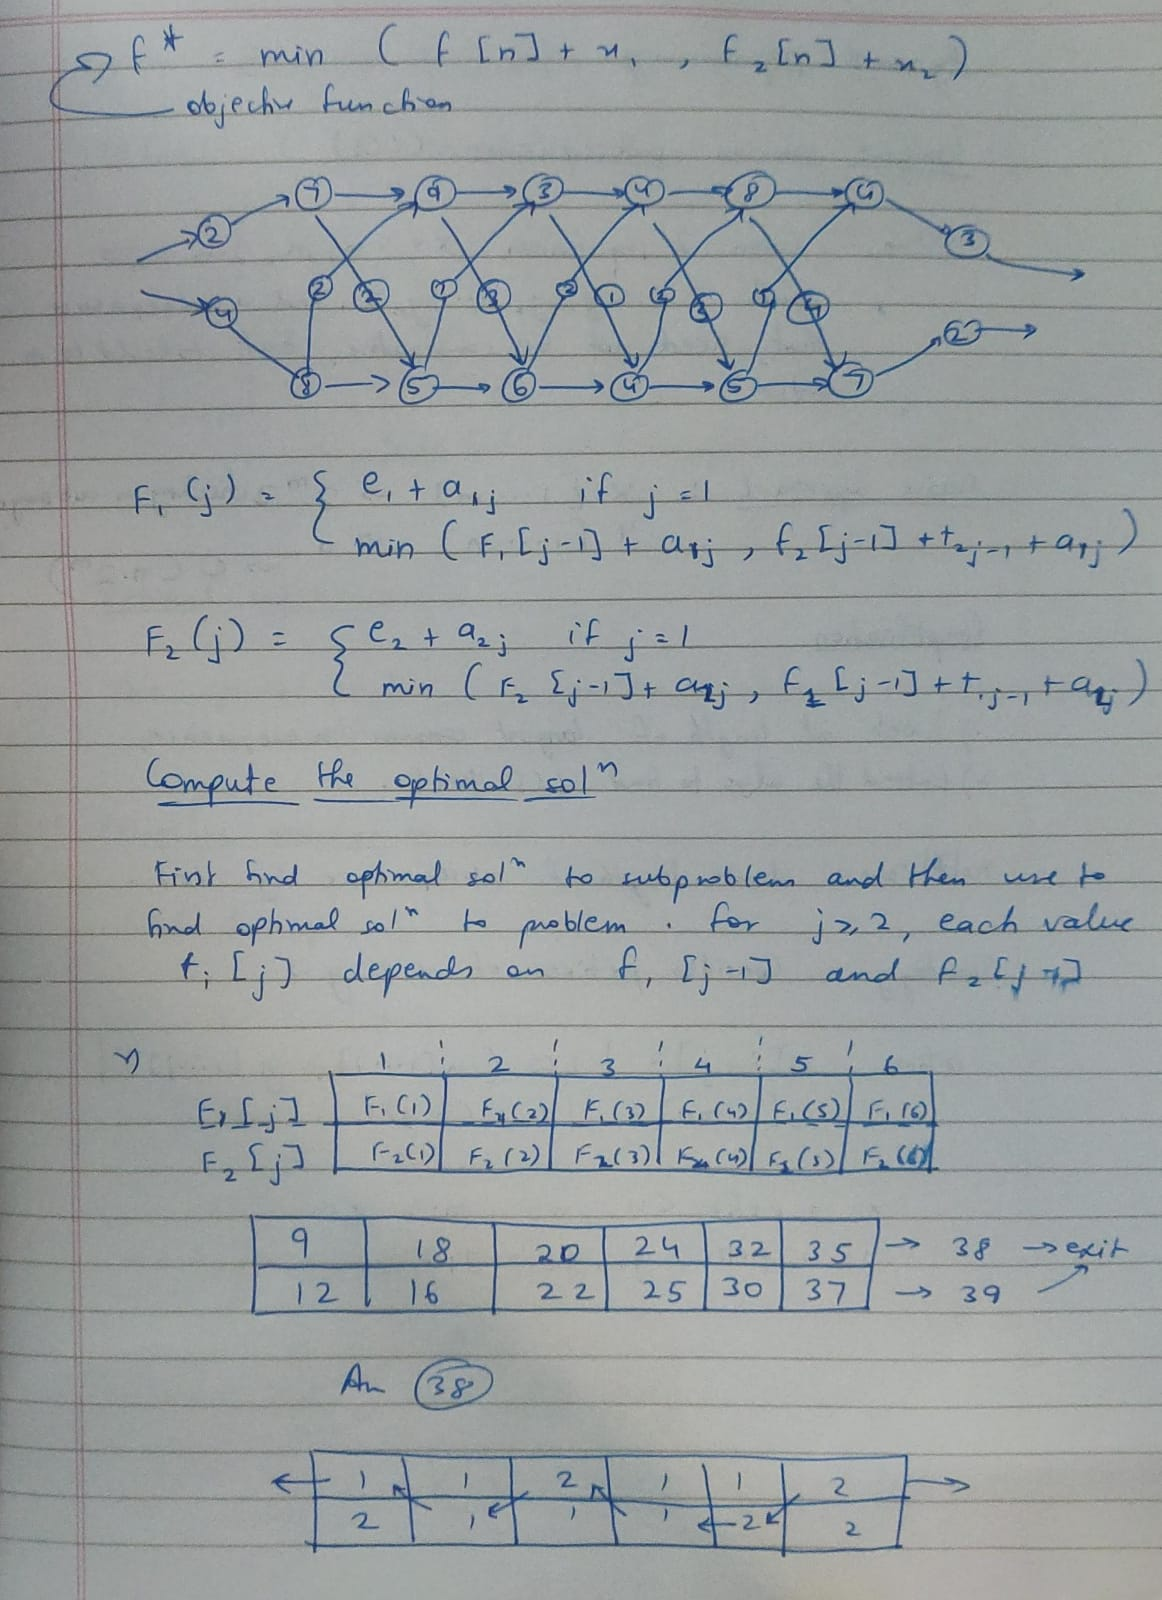 f* = min ( f [n] + x₁ , f₂ [n] + x₂ )
objective function
7 9 3 4 8 4
2 3
2 2 1 3 2 1 2 3 1 4
4 2
8 5 6 4 5 7
F₁ (j) = { e₁ + a₁j if j = 1
min ( F₁ [j-1] + a₁j , f₂ [j-1] + t₂j-1 + a₁j )
F₂ (j) = { e₂ + a₂j if j = 1
min ( F₂ [j-1] + a₂j , f₁ [j-1] + t₁j-1 + a₂j )
Compute the optimal solⁿ
First find optimal solⁿ to subproblem and then use to
find optimal solⁿ to problem . for j ≥ 2, each value
fi [j] depends on f₁ [j-1] and f₂ [j-1]
1 2 3 4 5 6
F₁ [j] F₁ (1) F₁ (2) F₁ (3) F₁ (4) F₁ (5) F₁ (6)
F₂ [j] F₂ (1) F₂ (2) F₂ (3) F₂ (4) F₂ (5) F₂ (6)
9 18 20 24 32 35 → 38 → exit
12 16 22 25 30 37 → 39
An 38
← 1 1 2 1 1 2 →
2 1 1 1 ← 2 2